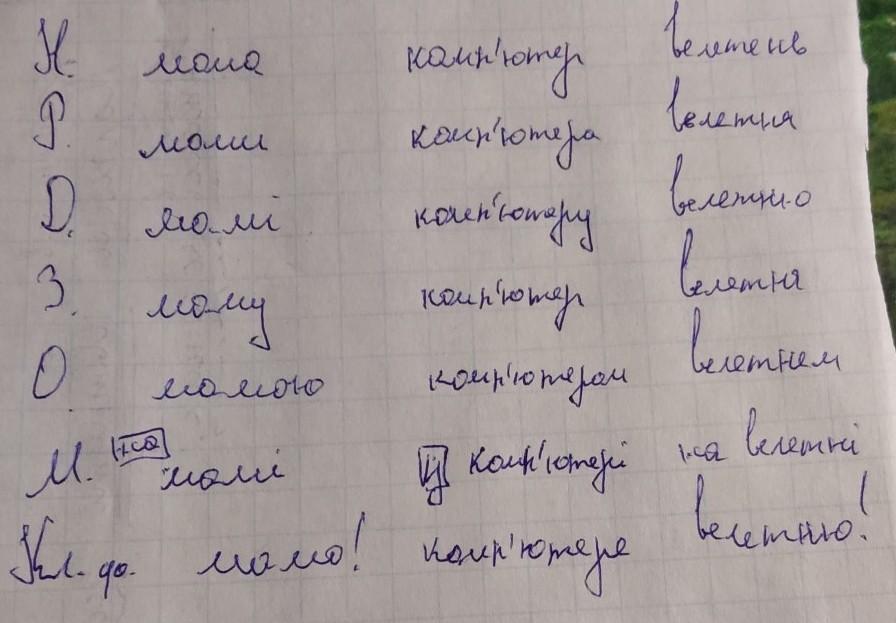 Н. мама комп'ютер велетень
Р. мами комп'ютера велетня
Д. мамі комп'ютеру велетню
З. маму комп'ютер велетня
О. мамою комп'ютером велетнем
М. на мамі у комп'ютері на велетні
Кл. ф. мамо! комп'ютере велетню!